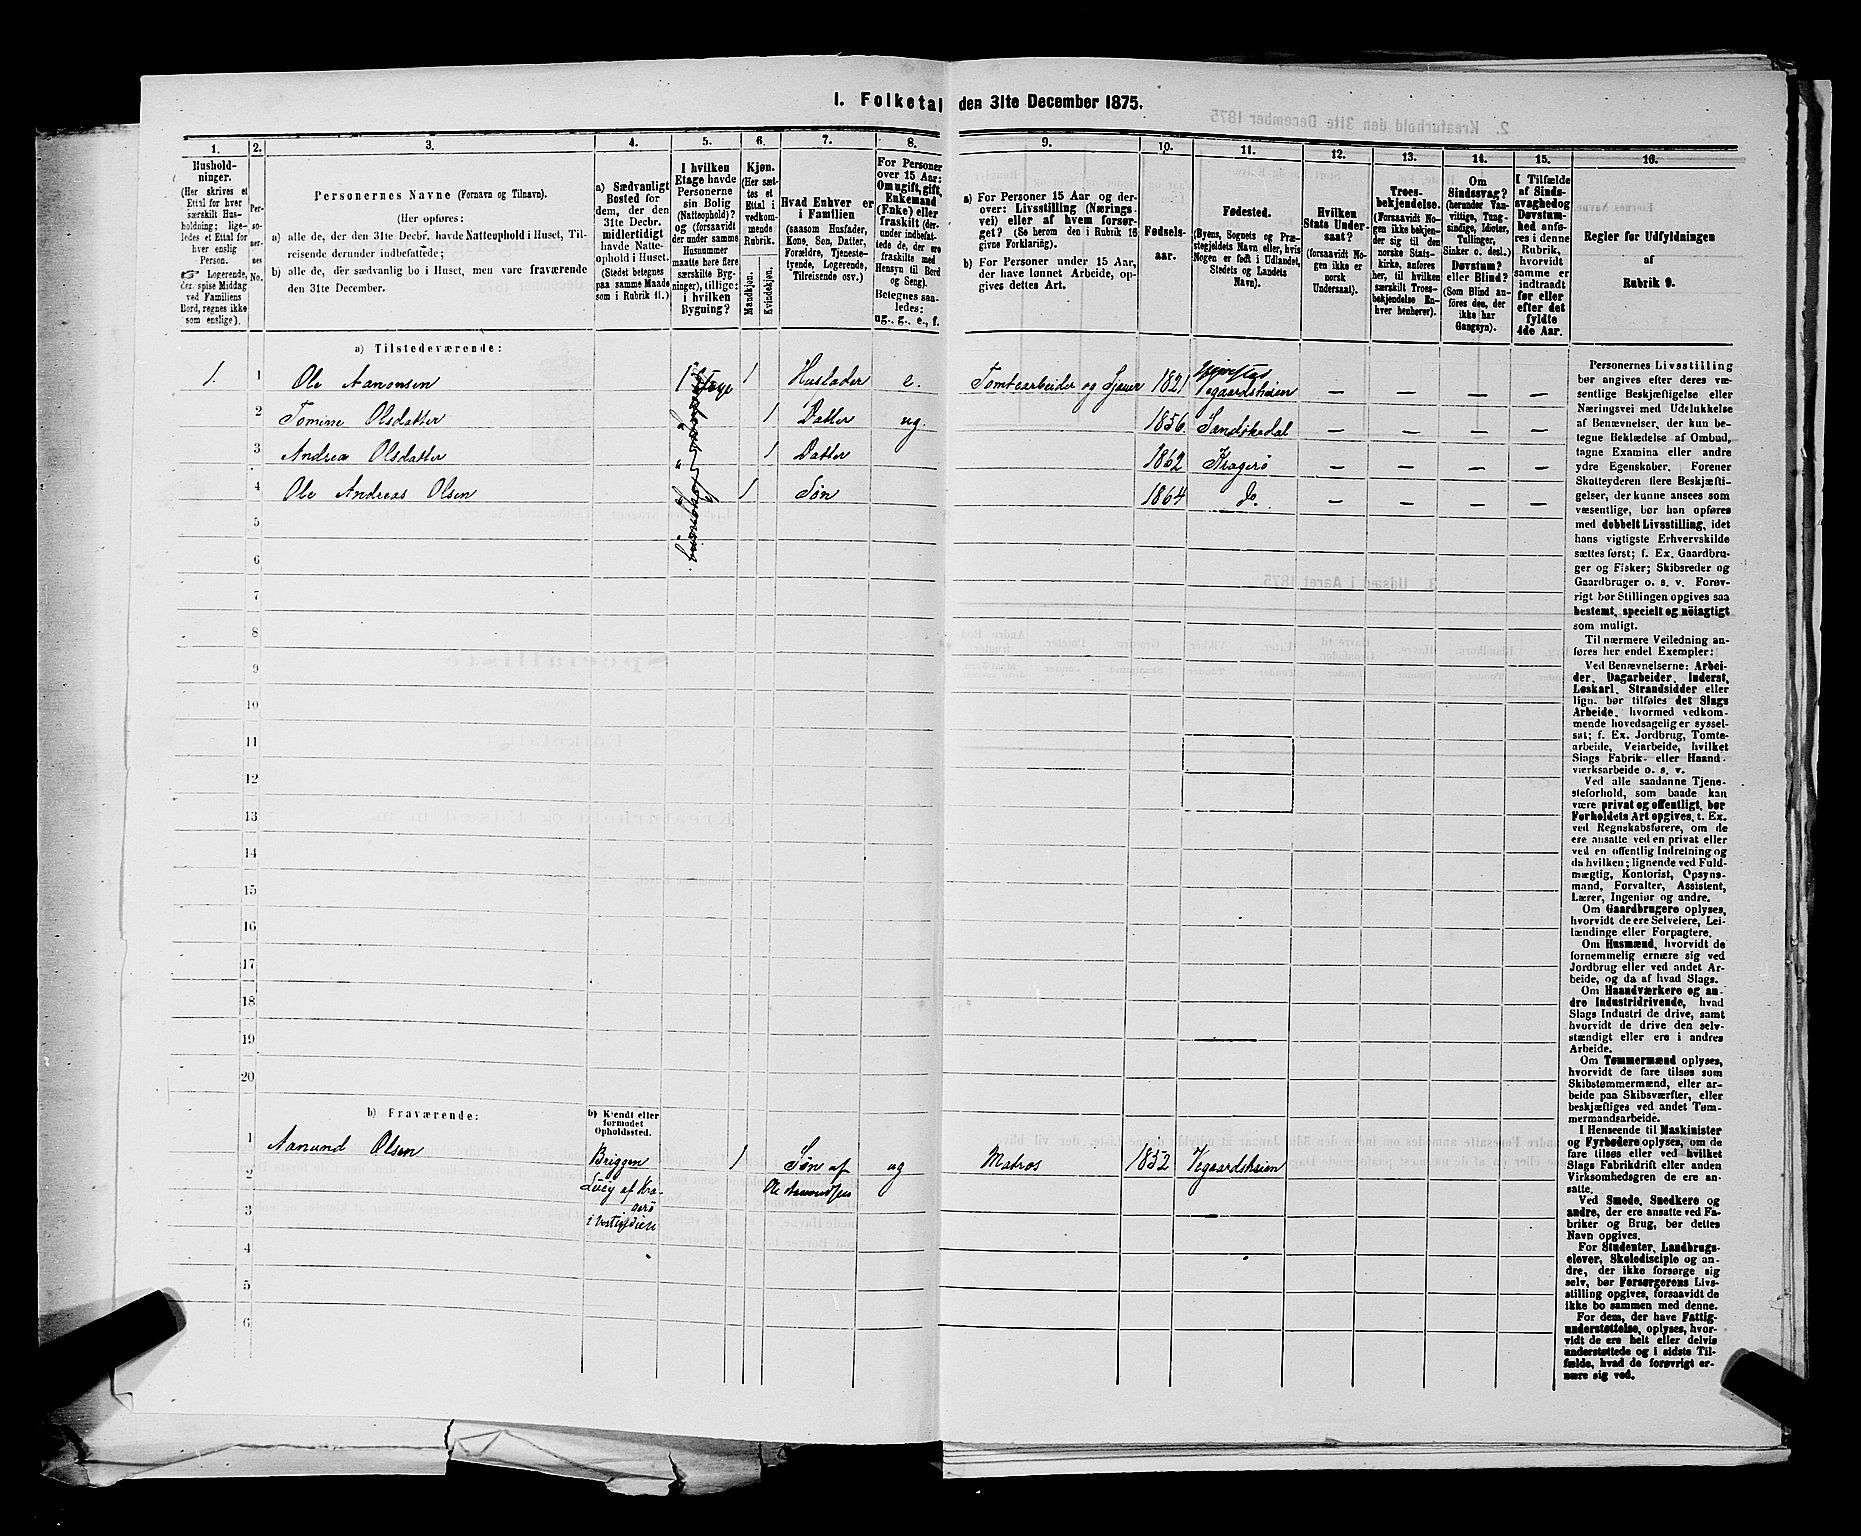 I. Folketal den 31te December 1875.
1.
Hushold-
ninger.
(Her skrives et
Ettal for hver
særskilt Hus-
holdning; lige-
ledes et Ettal for
hver enslig
Person.
Logerende,
der spise Middag
ved Familiens
Bord, regnes ikke
som enslige).
2.
Per-
so-
ner-
nes
No.
3.
Personernes Navne (Fornavn og Tilnavn).
(Her opføres:
a) alle de, der den 31te Decbr. havde Natteophold i Huset, Til-
reisende derunder indbefattede;
b) alle de, der sædvanlig bo i Huset, men vare fraværende
den 31te December.
4.
a) Sædvanligt
Bosted for
dem, der den
31te Decbr.
midlertidigt
havde Natte-
ophold i Huset.
(Stedet betegnes
paa samme Maade
som i Rubrik 11.)
5.
I hvilken
Etage havde
Personerne
sin Bolig
(Natteophold)?
og (forsaavidt
der under samme
Husnummer
maatte høre flere
særskilte Byg-
ninger), tillige:
i hvilken
Bygning?
6.
Kjøn.
(Her sæt-
tes et
Ettal i
vedkom-
mende
Rubrik.
Mandkjøn.
Kvindekjøn.
7.
Hvad Enhver er
i Familien
(saasom Husfader,
Kone, Søn, Datter,
Forældre, Tjeneste-
tyende, Logerende,
Tilreisende osv.)
8.
For Personer
over 15 Aar:
Om ugift, gift,
Enkemand
(Enke) eller
fraskilt (der-
under indbefat-
tede de, der ere
fraskilte med
Hensyn til Bord
og Seng).
Betegnes saa-
ledes:
ug., g., e., f.
9.
a) For Personer 15 Aar og der-
over: Livsstilling (Nærings-
vei) eller af hvem forsør-
get? (Se herom den i Rubrik 16
givne Forklaring).
b) For Personer under 15 Aar,
der have lønnet Arbeide, op-
gives dettes Art.
10.
Fødsels-
aar.
11.
Fødested.
(Byens, Sognets og Præ-
stegjeldets Navn eller, hvis
Nogen er født i Udlandet,
Stedets og Landets
Navn).
12.
Hvilken
Stats Under-
saat?
(forsaavidt No-
gen ikke er
norsk
Undersaat).
13.
Troes-
bekjendelse.
(Forsaavidt No-
gen ikke bekjen-
der sig til den
norske Stats-
kirke, anføres
her, til hvilken
særskilt Troes-
bekjendelse En-
hver henhører).
14.
Om
Sindssvag?
(herunder Van-
vittige, Tung-
sindige, Idioter,
Tullinger,
Sinker o. desl.)
Døvstum?
eller Blind?
(Som Blind an-
føres den, der
ikke har
Gangsyn).
15.
I Tilfælde
af Sinds-
svaghed og
Døvstum-
hed anfø-
res i denne
Rubrik,
hvorvidt
samme er
indtraadt
før eller
efter det
fyldte
4de Aar.
16.
Regler for Udfyldningen
af
Rubrik 9.
a) Tilstedeværende:
1. 1 Ole Aanonsen 1 Etage 1 Husfader e. Tomtearbeider og Sjauer 1821 Vegaardsheien — — — —
2 Tomine Olsdatter " 1 Datter ug. 1856. Sandøkedal — — — —
3 Andrea Olsdatter " 1 Datter 1862 Kragerø — — — —
4 Ole Andreas Olsen " 1 Søn 1864 do. — — — —
5
6
7
8
9
10
11
12
13
14
15
16
17
18
19
20
b) Fraværende:
b) Kjendt eller
formodet
Opholdssted.
1 Aanund Olsen Briggen 1 Søn af ug Matros 1852 Vegaardsheien
2 Lucy af Kra- Ole Aanundsen
3 gerø
i
4
5
6
Personernes Livsstilling
bør angives efter deres væ-
sentlige Beskjæftigelse eller
Næringsvei med Udelukkelse
af Benævnelser, der kun be-
tegne Beklædelse af Ombud,
tagne Examina eller andre
ydre Egenskaber. Forener
Skatteyderen flere Beskjæfti-
gelser, der kunne ansees som
væsentlige, bør han opføres
med dobbelt Livsstilling, idet
hans vigtigste Erhvervskilde
sættes først; f. Ex. Gaardbru-
ger og Fisker; Skibsreder og
Gaardbruger o. s. v. Forøv-
rigt bør Stillingen opgives saa
bestemt, specielt og nöiagtigt
som muligt.
Til nærmere Veiledning an-
føres her endel Exempler:
Ved Benævnelserne: Arbei-
der, Dagarbeider, Inderst,
Løskarl, Strandsidder eller
lign. bør tilføies det Slags
Arbeide, hvormed vedkom-
mende hovedsagelig er syssel-
sat; f. Ex. Jordbrug, Tomte-
arbeide, Veiarbeide, hvilket
Slags Fabrik- eller Haand-
værksarbeide o. s. v.
Ved alle saadanne Tjene-
steforhold, som baade kan
være privat og offentligt, bør
Forholdets Art opgives, t. Ex.
ved Regnskabsførere, om de
ere ansatte ved en privat eller
ved en offentlig Indretning og
da hvilken; lignende ved Fuld-
mægtig, Kontorist, Opsyns-
mand, Forvalter, Assistent,
Lærer, Ingeniør og andre.
Om Gaardbrugere oplyses,
hvorvidt de ere Selveiere, Lei-
lændinge eller Forpagtere.
Om Husmænd, hvorvidt de
fornemmelig ernære sig ved
Jordbrug eller ved andet Ar-
beide, og da af hvad Slags.
Om Haandværkere og an-
dre Industridrivende, hvad
Slags Industri de drive, samt
hvorvidt de drive den selv-
stændigt eller ere i andres
Arbeide.
Om Tømmermænd oplyses,
hvorvidt de fare tilsøs som
Skibstømmermænd, eller ar-
beide paa Skibsværfter, eller
beskjæftiges ved andet Tøm-
mermandsarbeide.
I Henseende til Maskinister
og Fyrbødere oplyses, om de
fare tilsøs eller ved hvilket
Slags Fabrikdrift eller anden
Virksomhedsgren de ere an-
satte.
Ved Smede, Snedkere og
andre, der ere ansatte ved Fa-
briker og Brug, bør dettes
Navn opgives.
For Studenter, Landbrugs-
elever, Skoledisciple og an-
dre, der ikke forsørge sig
selv, bør Forsørgerens Livs-
stilling opgives, forsaavidt de
ikke bo sammen med denne.
For dem, der have Fattig-
understøttelse, oplyses, hvor-
vidt de ere helt eller delvis
understøttede og i sidste Til-
fælde, hvad de forøvrigt er-
nære sig ved.